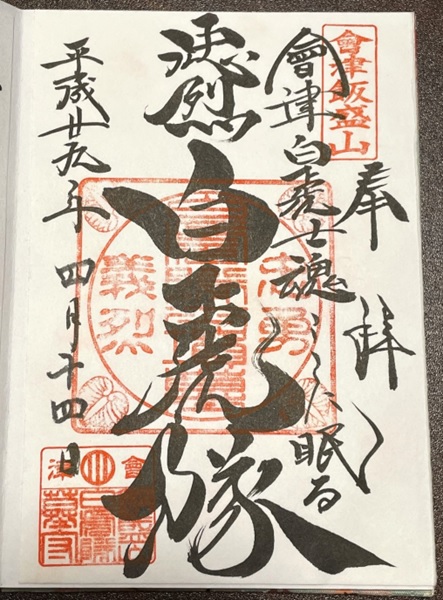 會津飯盛山
奉拝
會津白虎士魂ここに眠る
烈
白虎隊
忠勇
義烈
平成廿九年四月十四日
會
津